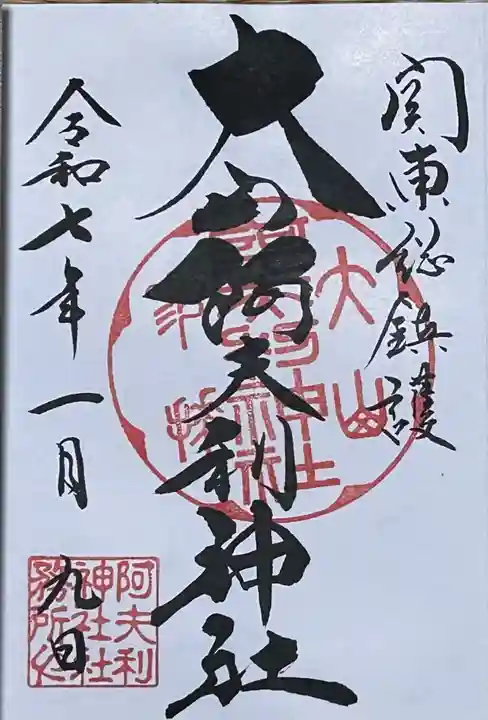 関東総鎮護
大山阿夫利神社
令和七年一月九日
阿夫利
神社社
務所